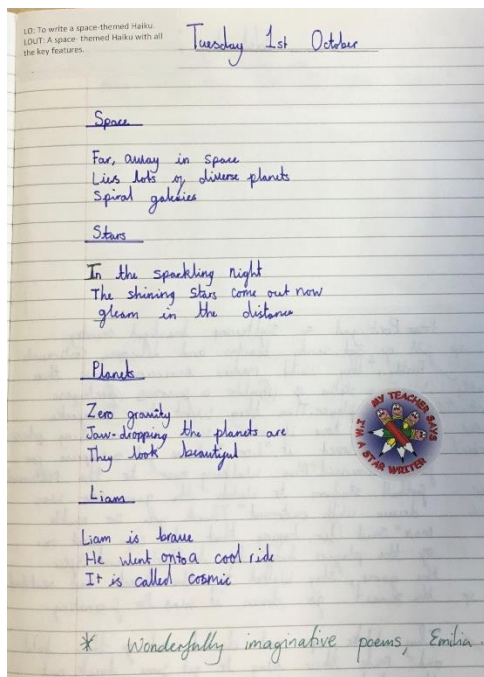 LO: To write a space-themed Haiku.
LOUT: A space- themed Haiku with all
the key features.
Tuesday 1st October
Space
Far, away in space
Lies lots of diverse planets
Spiral galaxies
Stars
In the sparkling night
The shining stars come out now
gleam in the distance
Planets
Zero gravity
Jaw-dropping the planets are
They look beautiful
MY TEACHER SAYS
I'M A STAR WRITER
Liam
Liam is brave
He went onto a cool ride
It is called cosmic
* Wonderfully imaginative poems, Emilia.